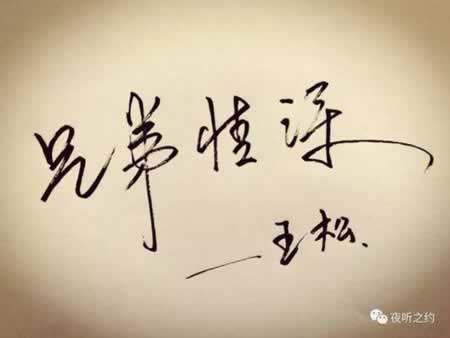 兄弟情深
—王松.
夜听之约